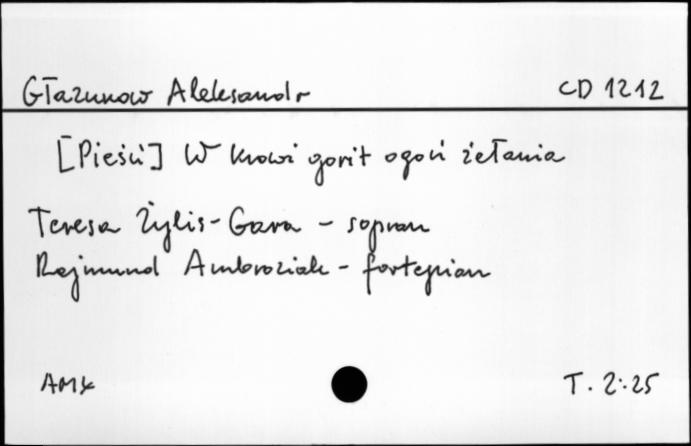 Głazunow Aleksandr CD 1212
[Pieśń] W krowi gorit ogoń żełania
Teresa Żylis-Gara - sopran
Rajmund Ambroziak - fortepian
T. 2:25